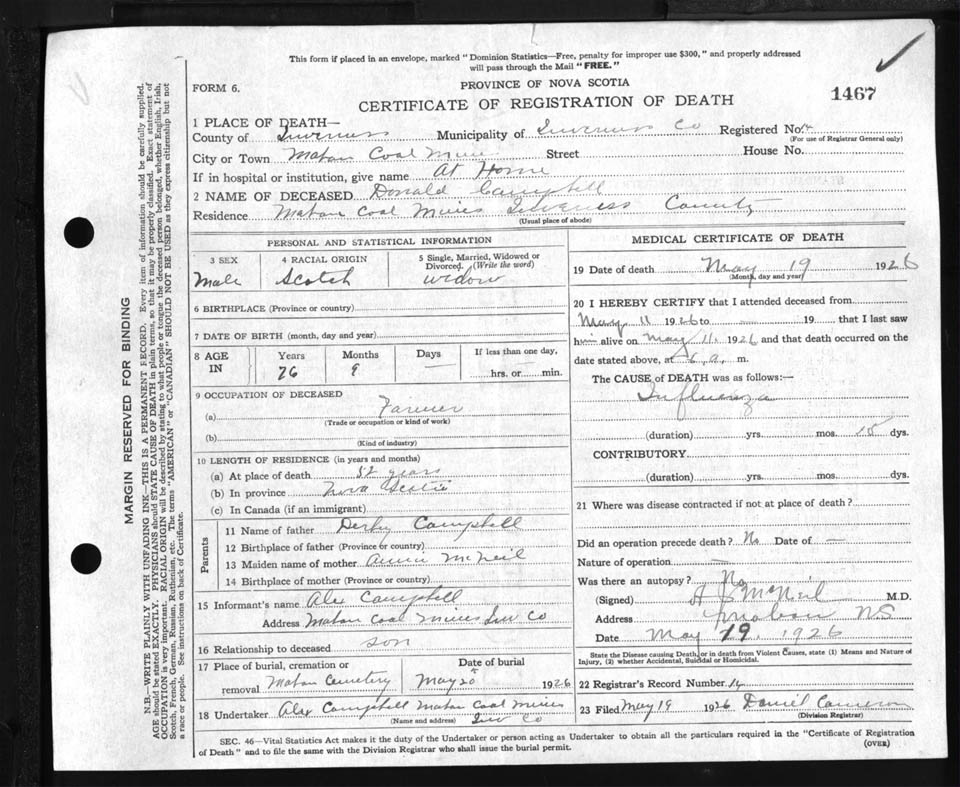 This form if placed in an envelope, marked "Dominion Statistics—Free, penalty for improper use $300," and properly addressed
will pass through the Mail "FREE."
FORM 6.
PROVINCE OF NOVA SCOTIA
CERTIFICATE OF REGISTRATION OF DEATH
1467
1 PLACE OF DEATH—
County of Inverness Municipality of Inverness Co Registered No. 14
(For use of Registrar General only)
City or Town Mabou Coal Mines Street House No.
If in hospital or institution, give name At Home
2 NAME OF DECEASED Donald Campbell
Residence Mabou Coal Mines Inverness County
(Usual place of abode)
PERSONAL AND STATISTICAL INFORMATION
3 SEX 4 RACIAL ORIGIN 5 Single, Married, Widowed or Divorced. (Write the word)
Male Scotch Widow
6 BIRTHPLACE (Province or country)
7 DATE OF BIRTH (month, day and year)
8 AGE IN Years Months Days If less than one day,
76 9 — hrs. or min.
9 OCCUPATION OF DECEASED
(a) Farmer
(Trade or occupation or kind of work)
(b)
(Kind of industry)
10 LENGTH OF RESIDENCE (in years and months)
(a) At place of death 52 years
(b) In province Nova Scotia
(c) In Canada (if an immigrant)
Parents
11 Name of father Campbell
12 Birthplace of father (Province or country)
13 Maiden name of mother Annie McNeil
14 Birthplace of mother (Province or country)
15 Informant's name Alex Campbell
Address Mabou Coal Mines Inv Co
16 Relationship to deceased son
17 Place of burial, cremation or Date of burial
removal Mabou Cemetery May 20 1926
18 Undertaker Alex Campbell Mabou Coal Mines
(Name and address) Inv Co
MEDICAL CERTIFICATE OF DEATH
19 Date of death May 19 1926
(Month, day and year)
20 I HEREBY CERTIFY that I attended deceased from
May 11 1926 to — 19 that I last saw
him alive on May 11, 1926 and that death occurred on the
date stated above, at 6 a. m.
The CAUSE of DEATH was as follows:—
Influenza
(duration) yrs. mos. 15 dys.
CONTRIBUTORY
(duration) yrs. mos. dys.
21 Where was disease contracted if not at place of death?
Did an operation precede death? No Date of —
Nature of operation —
Was there an autopsy? No
(Signed) McNeil M.D.
Address Mabou NS
Date May 19. 1926
State the Disease causing Death, or in death from Violent Causes, state (1) Means and Nature of
Injury, (2) whether Accidental, Suicidal or Homicidal.
22 Registrar's Record Number 14
23 Filed May 19 1926 Daniel Cameron
(Division Registrar)
SEC. 46—Vital Statistics Act makes it the duty of the Undertaker or person acting as Undertaker to obtain all the particulars required in the "Certificate of Registration
of Death" and to file the same with the Division Registrar who shall issue the burial permit.
(OVER)
MARGIN RESERVED FOR BINDING
N.B.—WRITE PLAINLY WITH UNFADING INK—THIS IS A PERMANENT RECORD. Every item of information should be carefully supplied.
AGE should be stated EXACTLY. PHYSICIANS should STATE CAUSE OF DEATH in plain terms, so that it may be properly classified. Exact statement of
OCCUPATION is very important. RACIAL ORIGIN will be described by stating to what people or tongue the deceased person belonged, whether English, Irish,
Scotch, French, German, Russian, Ruthenian, etc. The terms "AMERICAN" or "CANADIAN" SHOULD NOT BE USED as they express citizenship but not
a race or people. See instructions on back of Certificate.